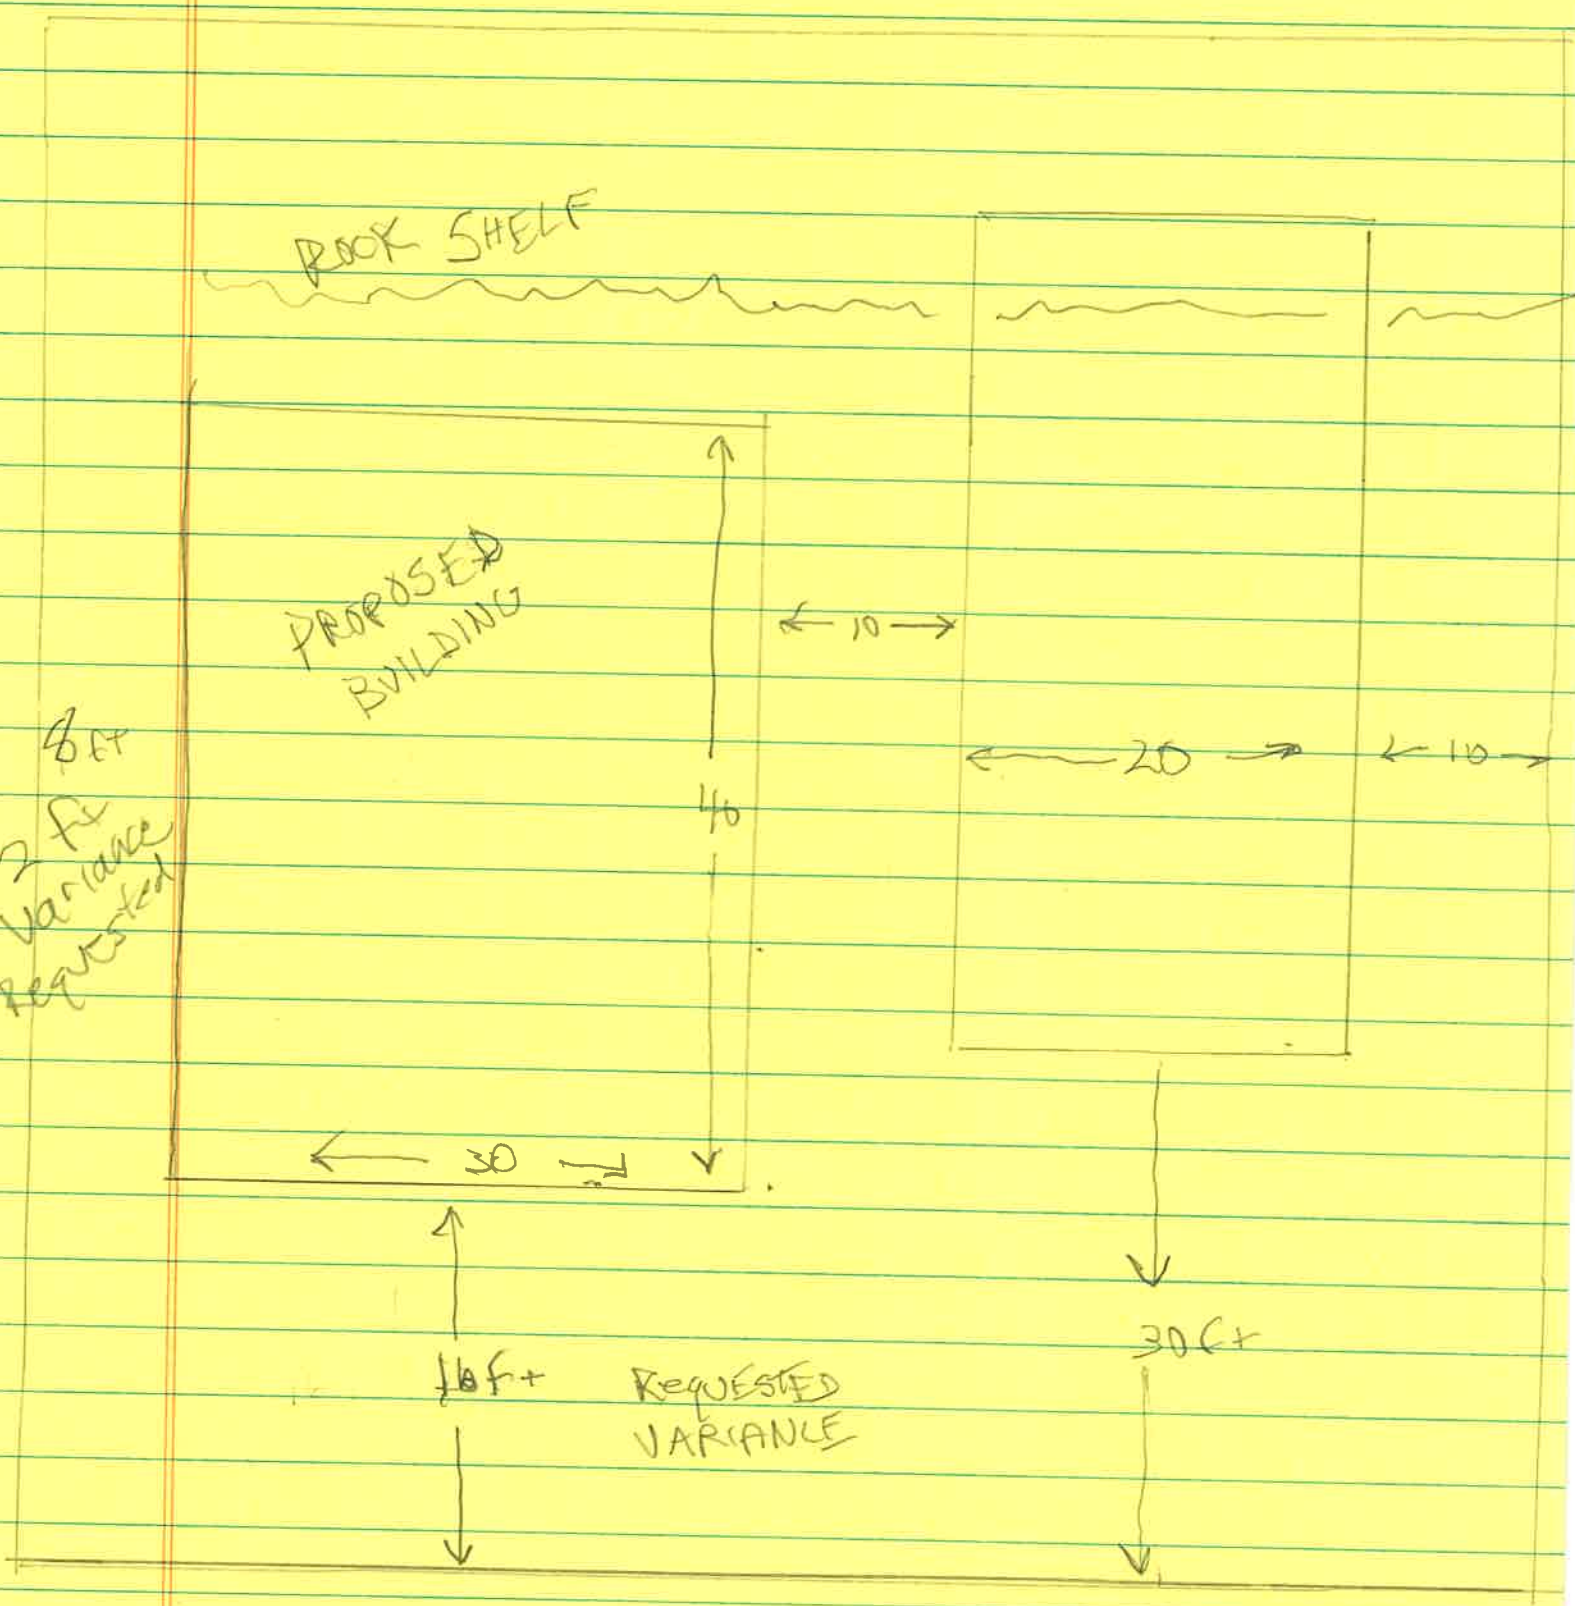 ROCK SHELF
PROPOSED
BUILDING
10
8 ft
20
10
2 ft
Variance
Requested
40
30
30 ft
ft REQUESTED
VARIANCE